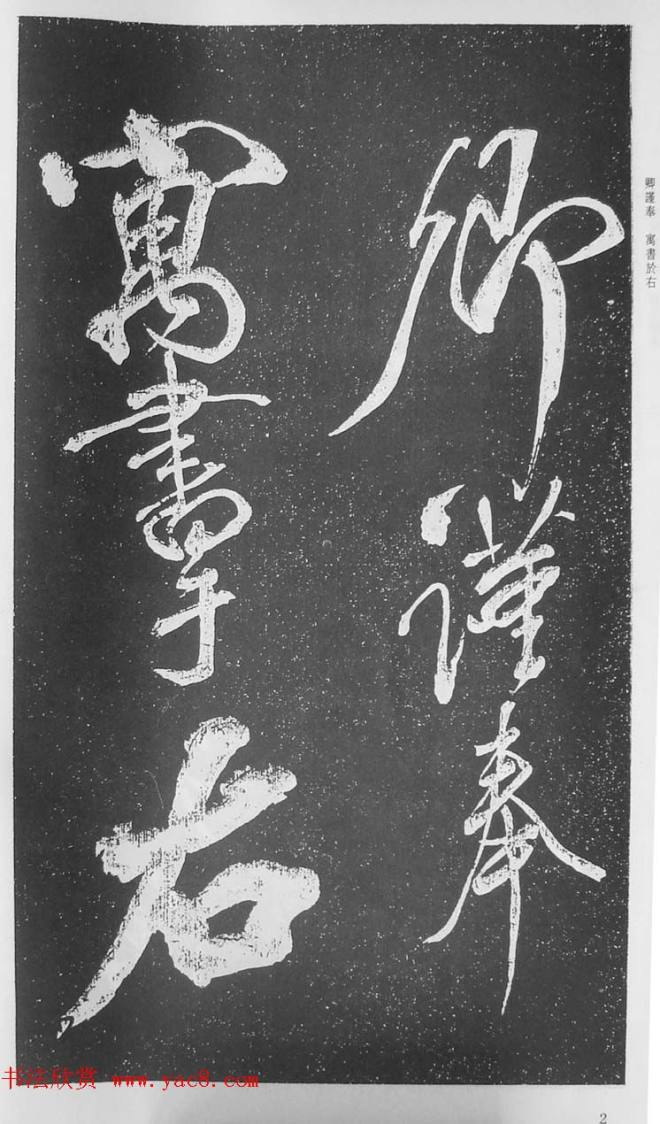 卿謹奉
寓書于右
卿謹奉 寓書於右
书法欣赏 www.yac8.com
2